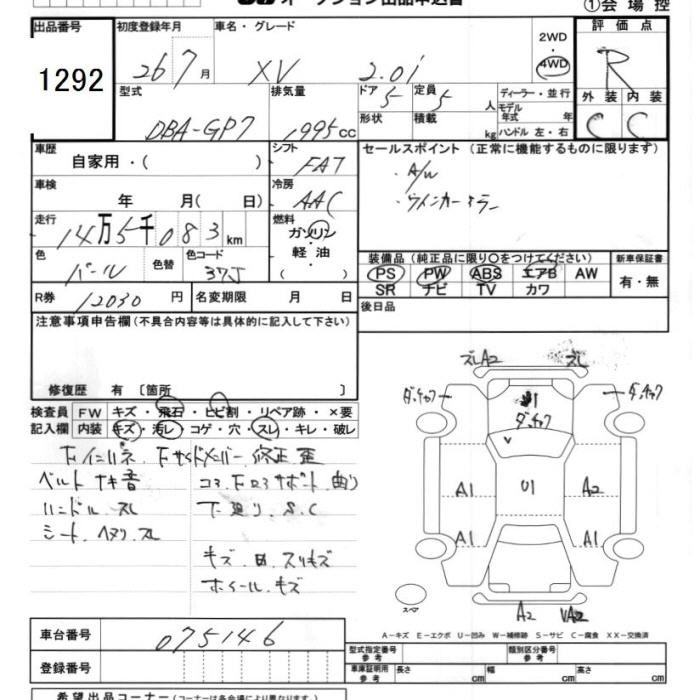 ①会場控
出品番号
初度登録年月
車名・グレード
評価点
1292
26 7月
XV
2.0i
2WD
・
4WD
R
型式
排気量
ドア
定員
ディーラー・並行
モデル年式
年
外装
内装
DBA-GP7
1995cc
5
5
人
形状
積載
kg
ハンドル 左・右
C
C
車歴
自家用・(
)
シフト
FAT
セールスポイント(正常に機能するものに限ります)
・A/W
・ウインカーミラー
車検
年
月(
日)
冷房
AAC
走行
14万5千083km
燃料
ガソリン
軽油
(
)
色
パール
色替
色コード
37J
装備品(純正品に限り〇をつけてください)
新車保証書
PS
PW
ABS
エアB
AW
有・無
SR
ナビ
TV
カワ
R券
12030円
名変期限
月
日
後日品
注意事項申告欄(不具合内容等は具体的に記入して下さい)
修復歴
有
〔箇所
〕
検査員
記入欄
FW
キズ・飛石・ヒビ割・リペア跡・×要
内装
キズ・汚レ・コゲ・穴・スレ・キレ・破レ
Fインパネ、Fサイドメンバー修正歪
ベルトナキ音
コアF ロアサポート曲り
ハンドル スレ
下廻り、S.C
シート、ヘタリ、スレ
キズ、凹、スリキズ
ホイール、キズ
ズレA2
ズレ
ダ、チョウ
ダ、チョウ
A1
U1
A2
A1
A1
スペア
A2
A-キズ E-エクボ U-凹み W-補修跡 S-サビ C-腐食 XX-交換済
車台番号
075146
型式指定番号
参考
類別区分番号
参考
登録番号
車庫証明用
参考
長さ
cm
幅
cm
高さ
cm
希望出品コーナー(コーナーは各会場により異なります)